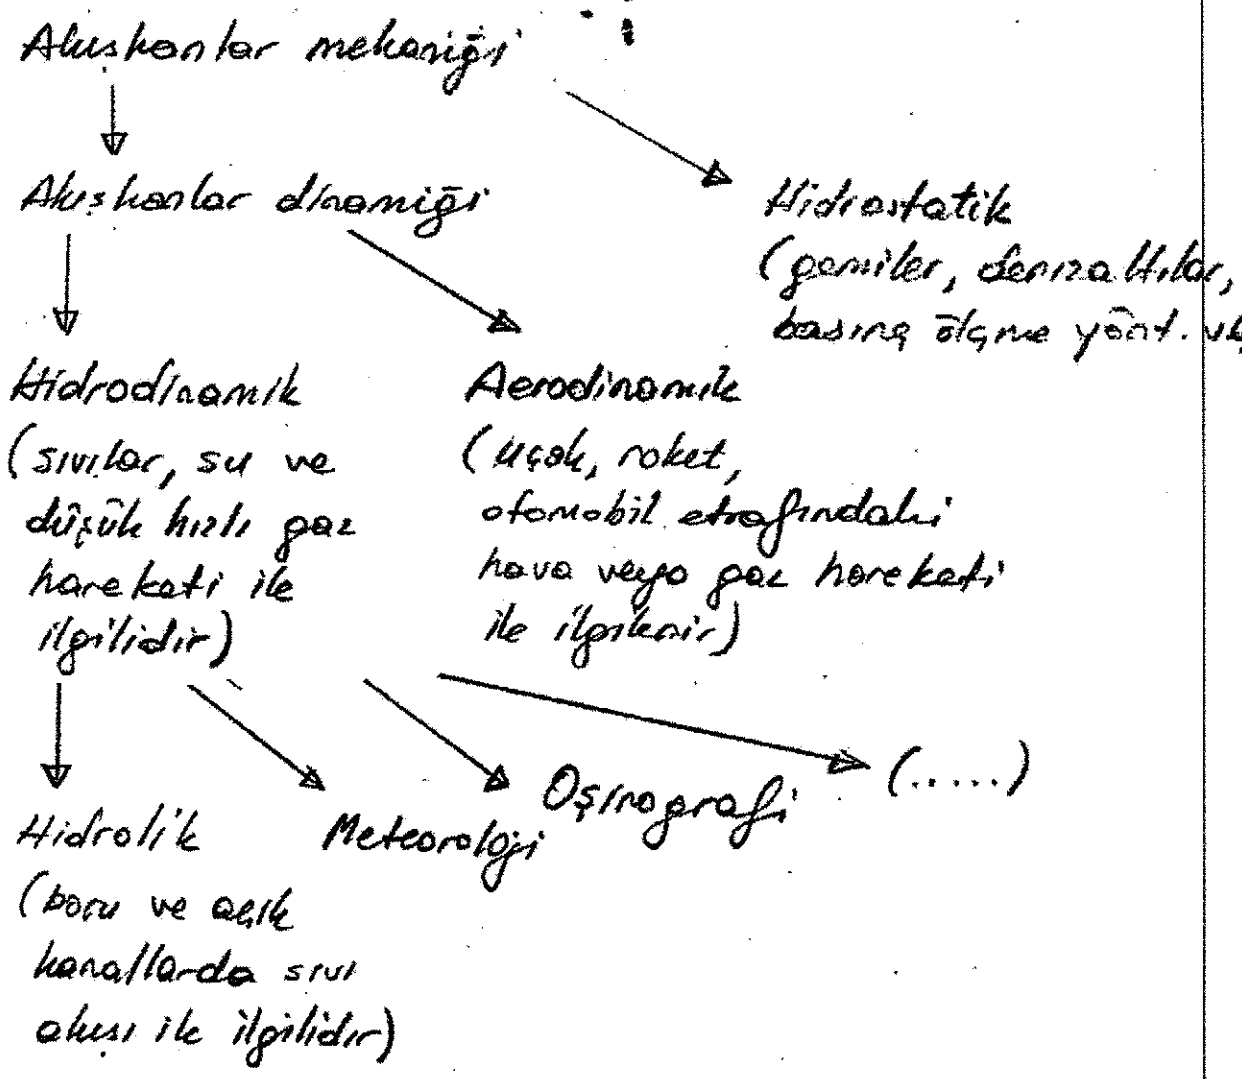 Akışkanlar mekaniği
Akışkanlar dinamiği
Hidrostatik
(gemiler, denizaltılar,
basınç ölçme yönt.
Hidrodinamik
(sıvılar, su ve
düşük hızlı gaz
hareketi ile
ilgilidir)
Aerodinamik
(uçak, roket,
otomobil etrafındaki
hava veya gaz hareketi
ile ilgilenir)
Hidrolik
(boru ve açık
kanallarda sıvı
akışı ile ilgilidir)
Meteoroloji
Oşinografi
(.....)